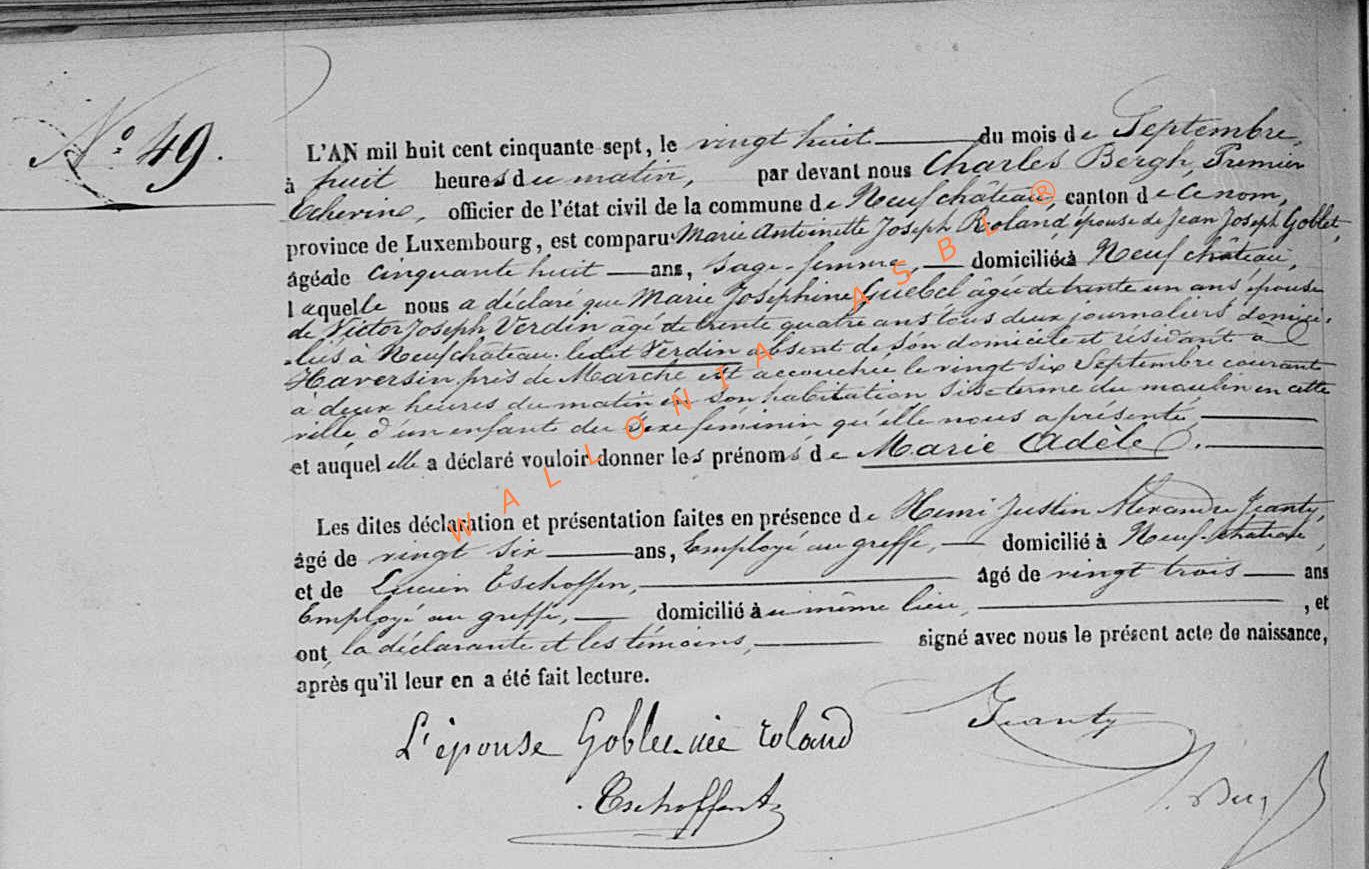 N.° 49.
L'AN mil huit cent cinquante-sept, le vingt huit du mois de Septembre,
à huit heures du matin, par devant nous Charles Bergh, Premier
Echevin, officier de l'état civil de la commune de Neufchâteau, canton de ce nom,
province de Luxembourg, est comparu Marie Antoinette Joseph Roland épouse de Jean Joseph Goblet,
âgée de cinquante huit ans, sage-femme, domiciliée à Neufchâteau,
laquelle nous a déclaré que Marie Joséphine Guebel âgée de trente un ans épouse
de Victor Joseph Verdin âgé de trente quatre ans tous deux journaliers domici-
-liés à Neufchâteau. ledit Verdin absent de son domicile et résidant à
Haversin près de Marche est accouchée le vingt six Septembre courant
à deux heures du matin en son habitation sise terme du moulin en cette
ville, d'un enfant du sexe féminin qu'elle nous a présenté,
et auquel elle a déclaré vouloir donner les prénoms de Marie Adèle.
Les dites déclaration et présentation faites en présence de Henri Justin Alexandre Jeanty,
âgé de vingt six ans, Employé au greffe, domicilié à Neufchâteau,
et de Lucien Tschoffen, âgé de vingt trois ans
Employé au greffe, domicilié au même lieu, , et
ont la déclarante et les témoins, signé avec nous le présent acte de naissance,
après qu'il leur en a été fait lecture.
L'épouse Goblet née roland
Jeanty
Tschoffen
WALLONIA ASBL ®